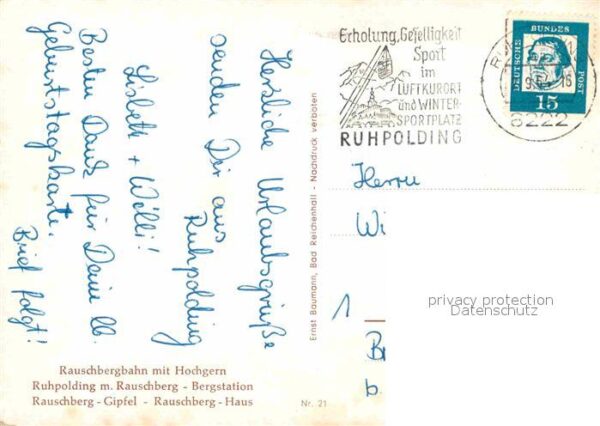 Herzliche Urlaubsgrüße
senden Dir aus
Ruhpolding
Lisbeth + Willi!
Besten Dank für Deine lb.
Geburtstagskarte.
Brief folgt!
Rauschbergbahn mit Hochgern
Ruhpolding m. Rauschberg - Bergstation
Rauschberg - Gipfel - Rauschberg - Haus
Nr. 21
Ernst Baumann, Bad Reichenhall - Nachdruck verboten
Erholung, Geselligkeit
Sport
im
LUFTKURORT
und WINTER-
SPORTPLATZ
RUHPOLDING
DEUTSCHE BUNDES POST
15
8222
Herrn
Wi
1
B
b.
privacy protection
Datenschutz